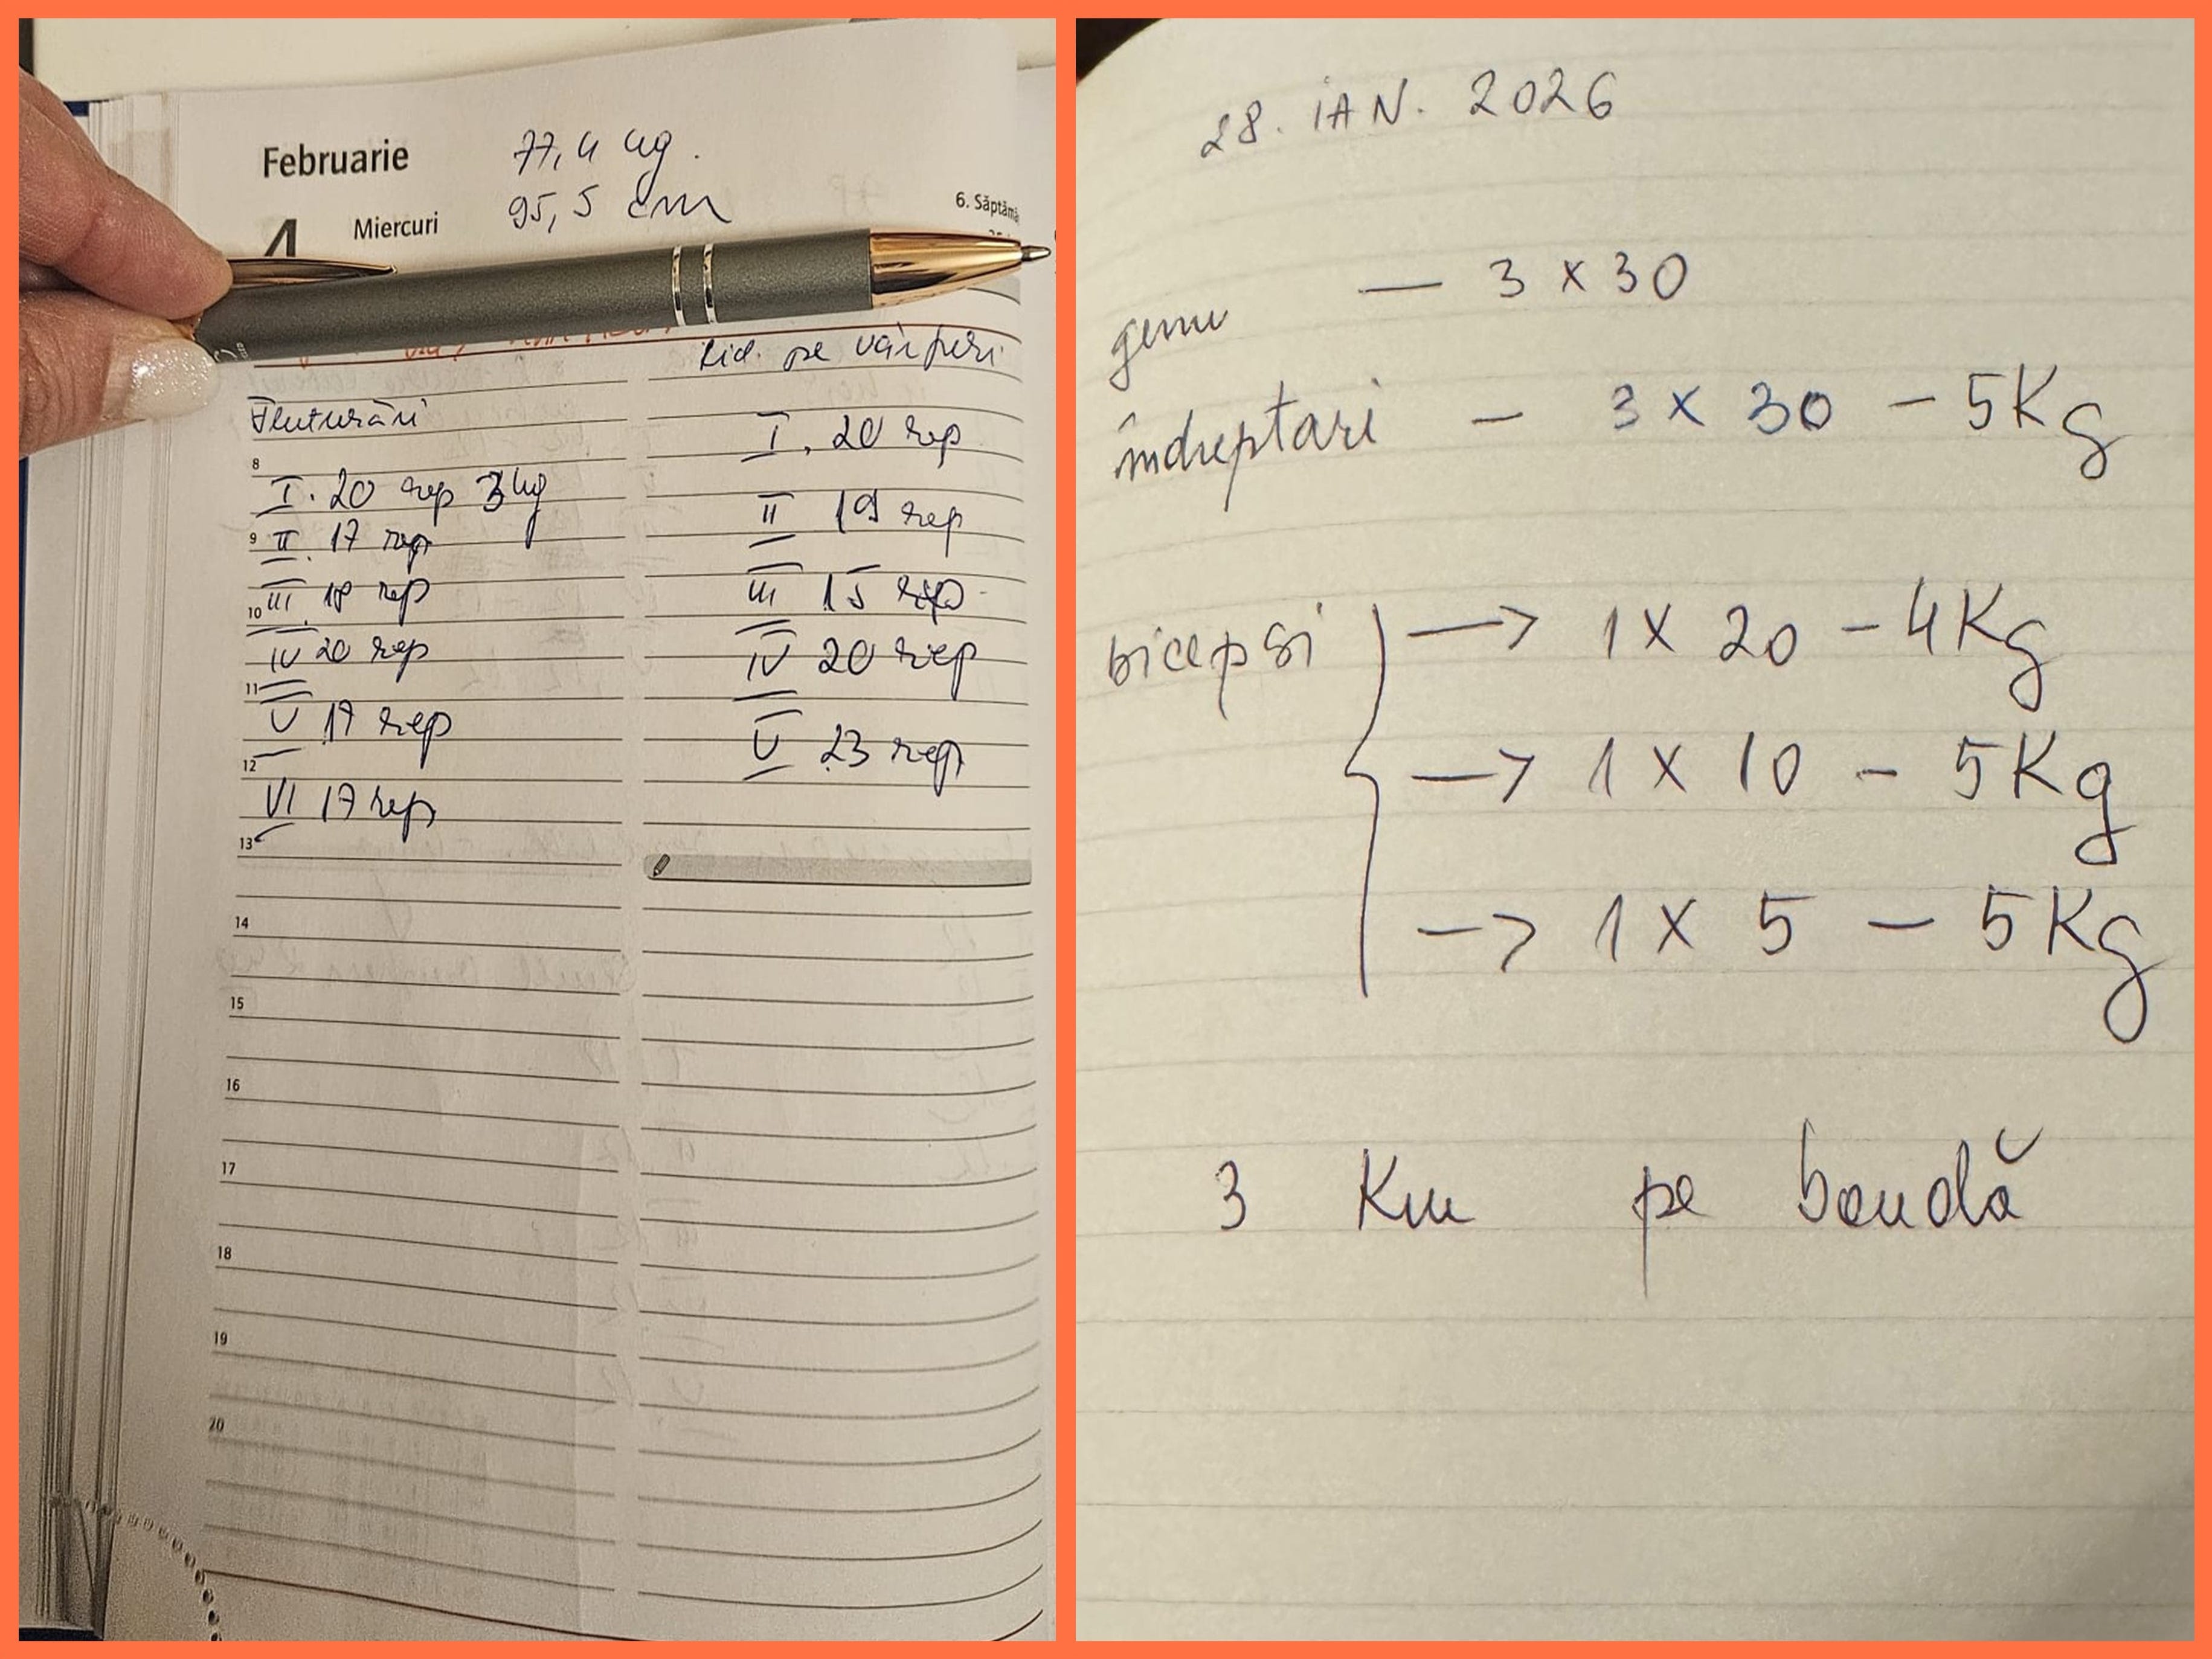 Februarie
77,4 kg.
4 Miercuri
95,5 cm
6. Săptămâ
Rid. pe vârfuri
Fluturări
I. 20 rep
8
I. 20 rep 3 kg
II 19 rep
9
II. 17 rep
III 15 rep
10
III. 18 rep
IV 20 rep
IV 20 rep
11
V 17 rep
V 23 rep
12
VI 17 rep
13
14
15
16
17
18
19
20
28. IAN. 2026
genu — 3 x 30
îndreptari – 3 x 30 – 5Kg
bicepsi → 1 x 20 – 4Kg
→ 1 x 10 – 5Kg
→ 1 x 5 – 5Kg
3 Km pe bandă